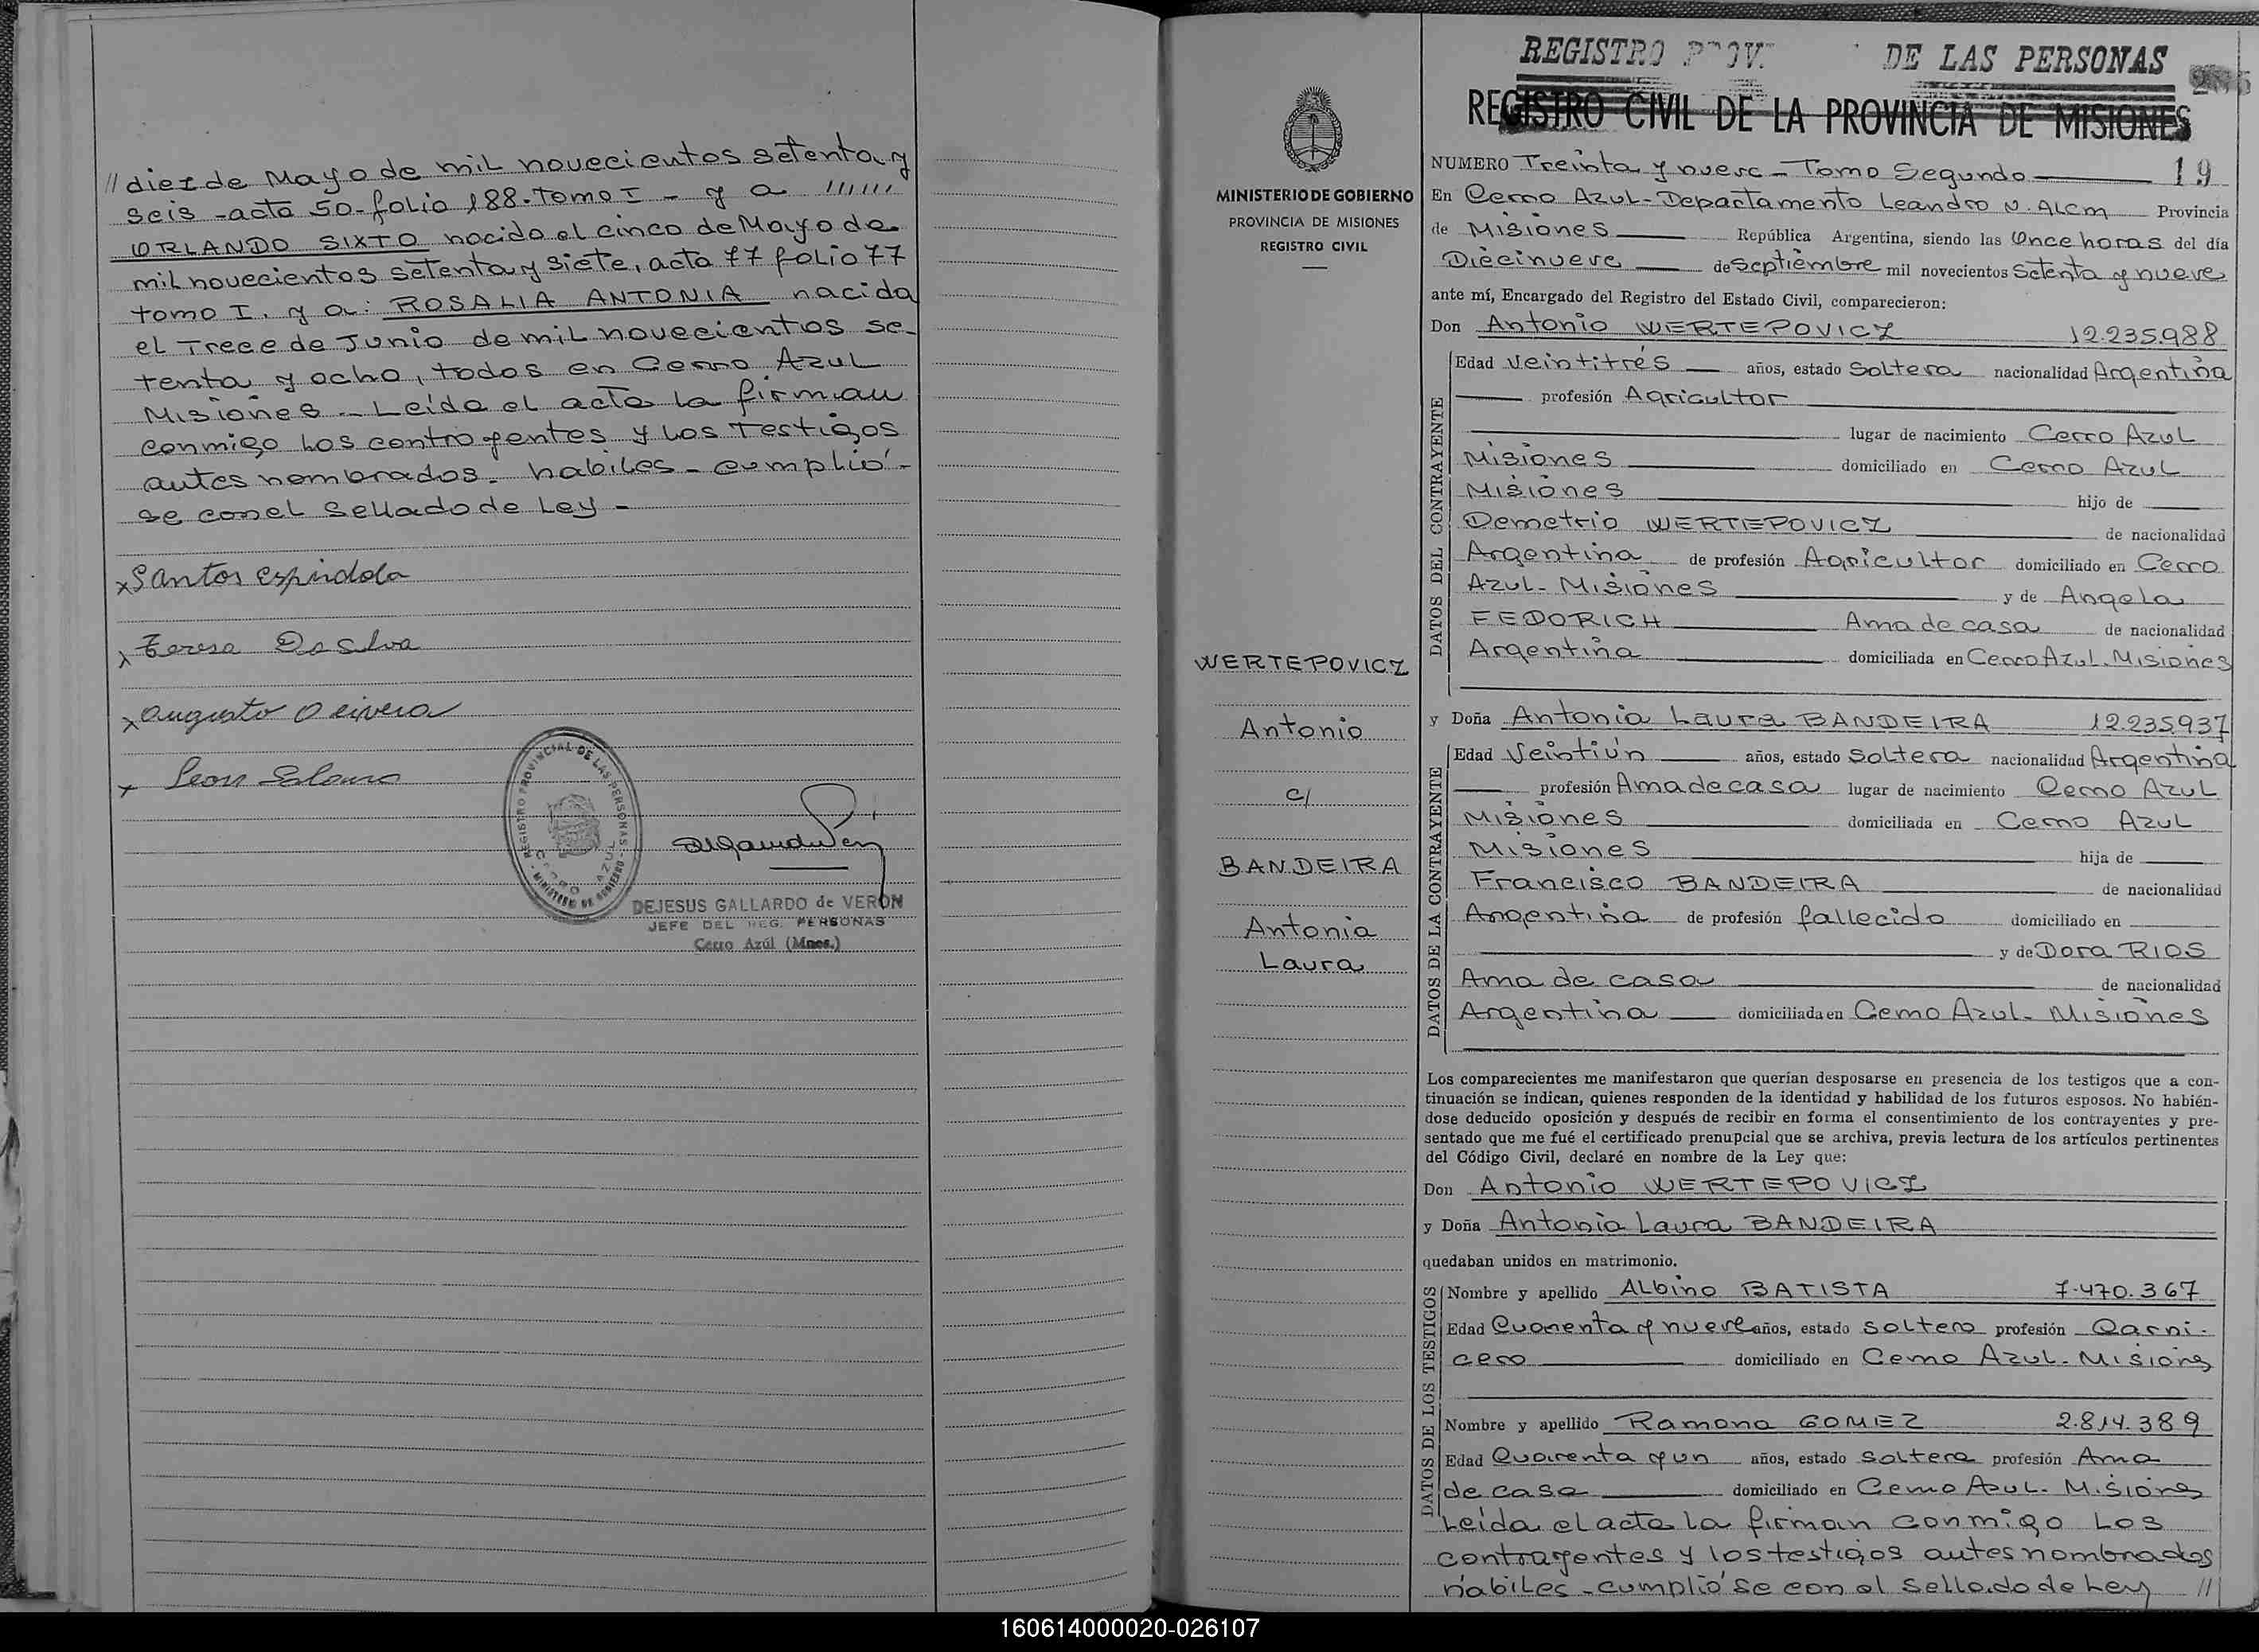 // diez de Mayo de mil novecientos setenta y
seis - acta 50 - folio 188 - tomo I - y a //////
ORLANDO SIXTO nacido el cinco de Mayo de
mil novecientos setenta y siete, acta 77 folio 77
tomo I. y a: ROSALIA ANTONIA nacida
el Trece de Junio de mil novecientos se-
tenta y ocho, todos en Cerro Azul
Misiones - Leída el acta la firman
conmigo los contrayentes y los Testigos
antes nombrados - habiles - cumplió-
se con el Sellado de Ley -
x Santos espindola
x Teresa Da silva
x augusto Oliveira
x Leon
REGISTRO PROVINCIAL DE LAS PERSONAS
CERRO AZUL
MINISTERIO DE GOBIERNO
DEJESUS GALLARDO de VERON
JEFE DEL REG. PERSONAS
Cerro Azúl (Mnes.)
MINISTERIO DE GOBIERNO
PROVINCIA DE MISIONES
REGISTRO CIVIL
WERTEPOVICZ
Antonio
c/
BANDEIRA
Antonia
Laura
REGISTRO PROV. DE LAS PERSONAS
REGISTRO CIVIL DE LA PROVINCIA DE MISIONES
NUMERO Treinta y nueve - Tomo Segundo 19
En Cerro Azul - Departamento Leandro N. Alem Provincia
de Misiones República Argentina, siendo las Once horas del día
Diecinueve de Septiembre mil novecientos Setenta y nueve
ante mí, Encargado del Registro del Estado Civil, comparecieron:
Don Antonio WERTEPOVICZ 12.235.988
DATOS DEL CONTRAYENTE
Edad Veintitrés años, estado Soltero nacionalidad Argentina
profesión Agricultor
lugar de nacimiento Cerro Azul
Misiones domiciliado en Cerro Azul
Misiones hijo de
Demetrio WERTEPOVICZ de nacionalidad
Argentina de profesión Agricultor domiciliado en Cerro
Azul - Misiones y de Angela
FEDORICH Ama de casa de nacionalidad
Argentina domiciliada en Cerro Azul. Misiones
y Doña Antonia Laura BANDEIRA 12.235.937
DATOS DE LA CONTRAYENTE
Edad Veintiún años, estado Soltera nacionalidad Argentina
profesión Ama de casa lugar de nacimiento Cerro Azul
Misiones domiciliada en Cerro Azul
Misiones hija de
Francisco BANDEIRA de nacionalidad
Argentina de profesión fallecido domiciliado en
y de Dora RIOS
Ama de casa de nacionalidad
Argentina domiciliada en Cerro Azul - Misiones
Los comparecientes me manifestaron que querían desposarse en presencia de los testigos que a con-
tinuación se indican, quienes responden de la identidad y habilidad de los futuros esposos. No habién-
dose deducido oposición y después de recibir en forma el consentimiento de los contrayentes y pre-
sentado que me fué el certificado prenupcial que se archiva, previa lectura de los artículos pertinentes
del Código Civil, declaré en nombre de la Ley que:
Don Antonio WERTEPOVICZ
y Doña Antonia Laura BANDEIRA
quedaban unidos en matrimonio.
DATOS DE LOS TESTIGOS
Nombre y apellido Albino BATISTA 7.470.367
Edad Cuarenta y nueve años, estado soltero profesión Carni-
cero domiciliado en Cerro Azul - Misiones
Nombre y apellido Ramona GOMEZ 2.814.389
Edad Cuarenta y un años, estado soltera profesión Ama
de casa domiciliado en Cerro Azul - Misiones
Leída el acta la firman conmigo los
contrayentes y los testigos antes nombrados
habiles - cumplió se con el sellado de Ley //
160614000020-026107